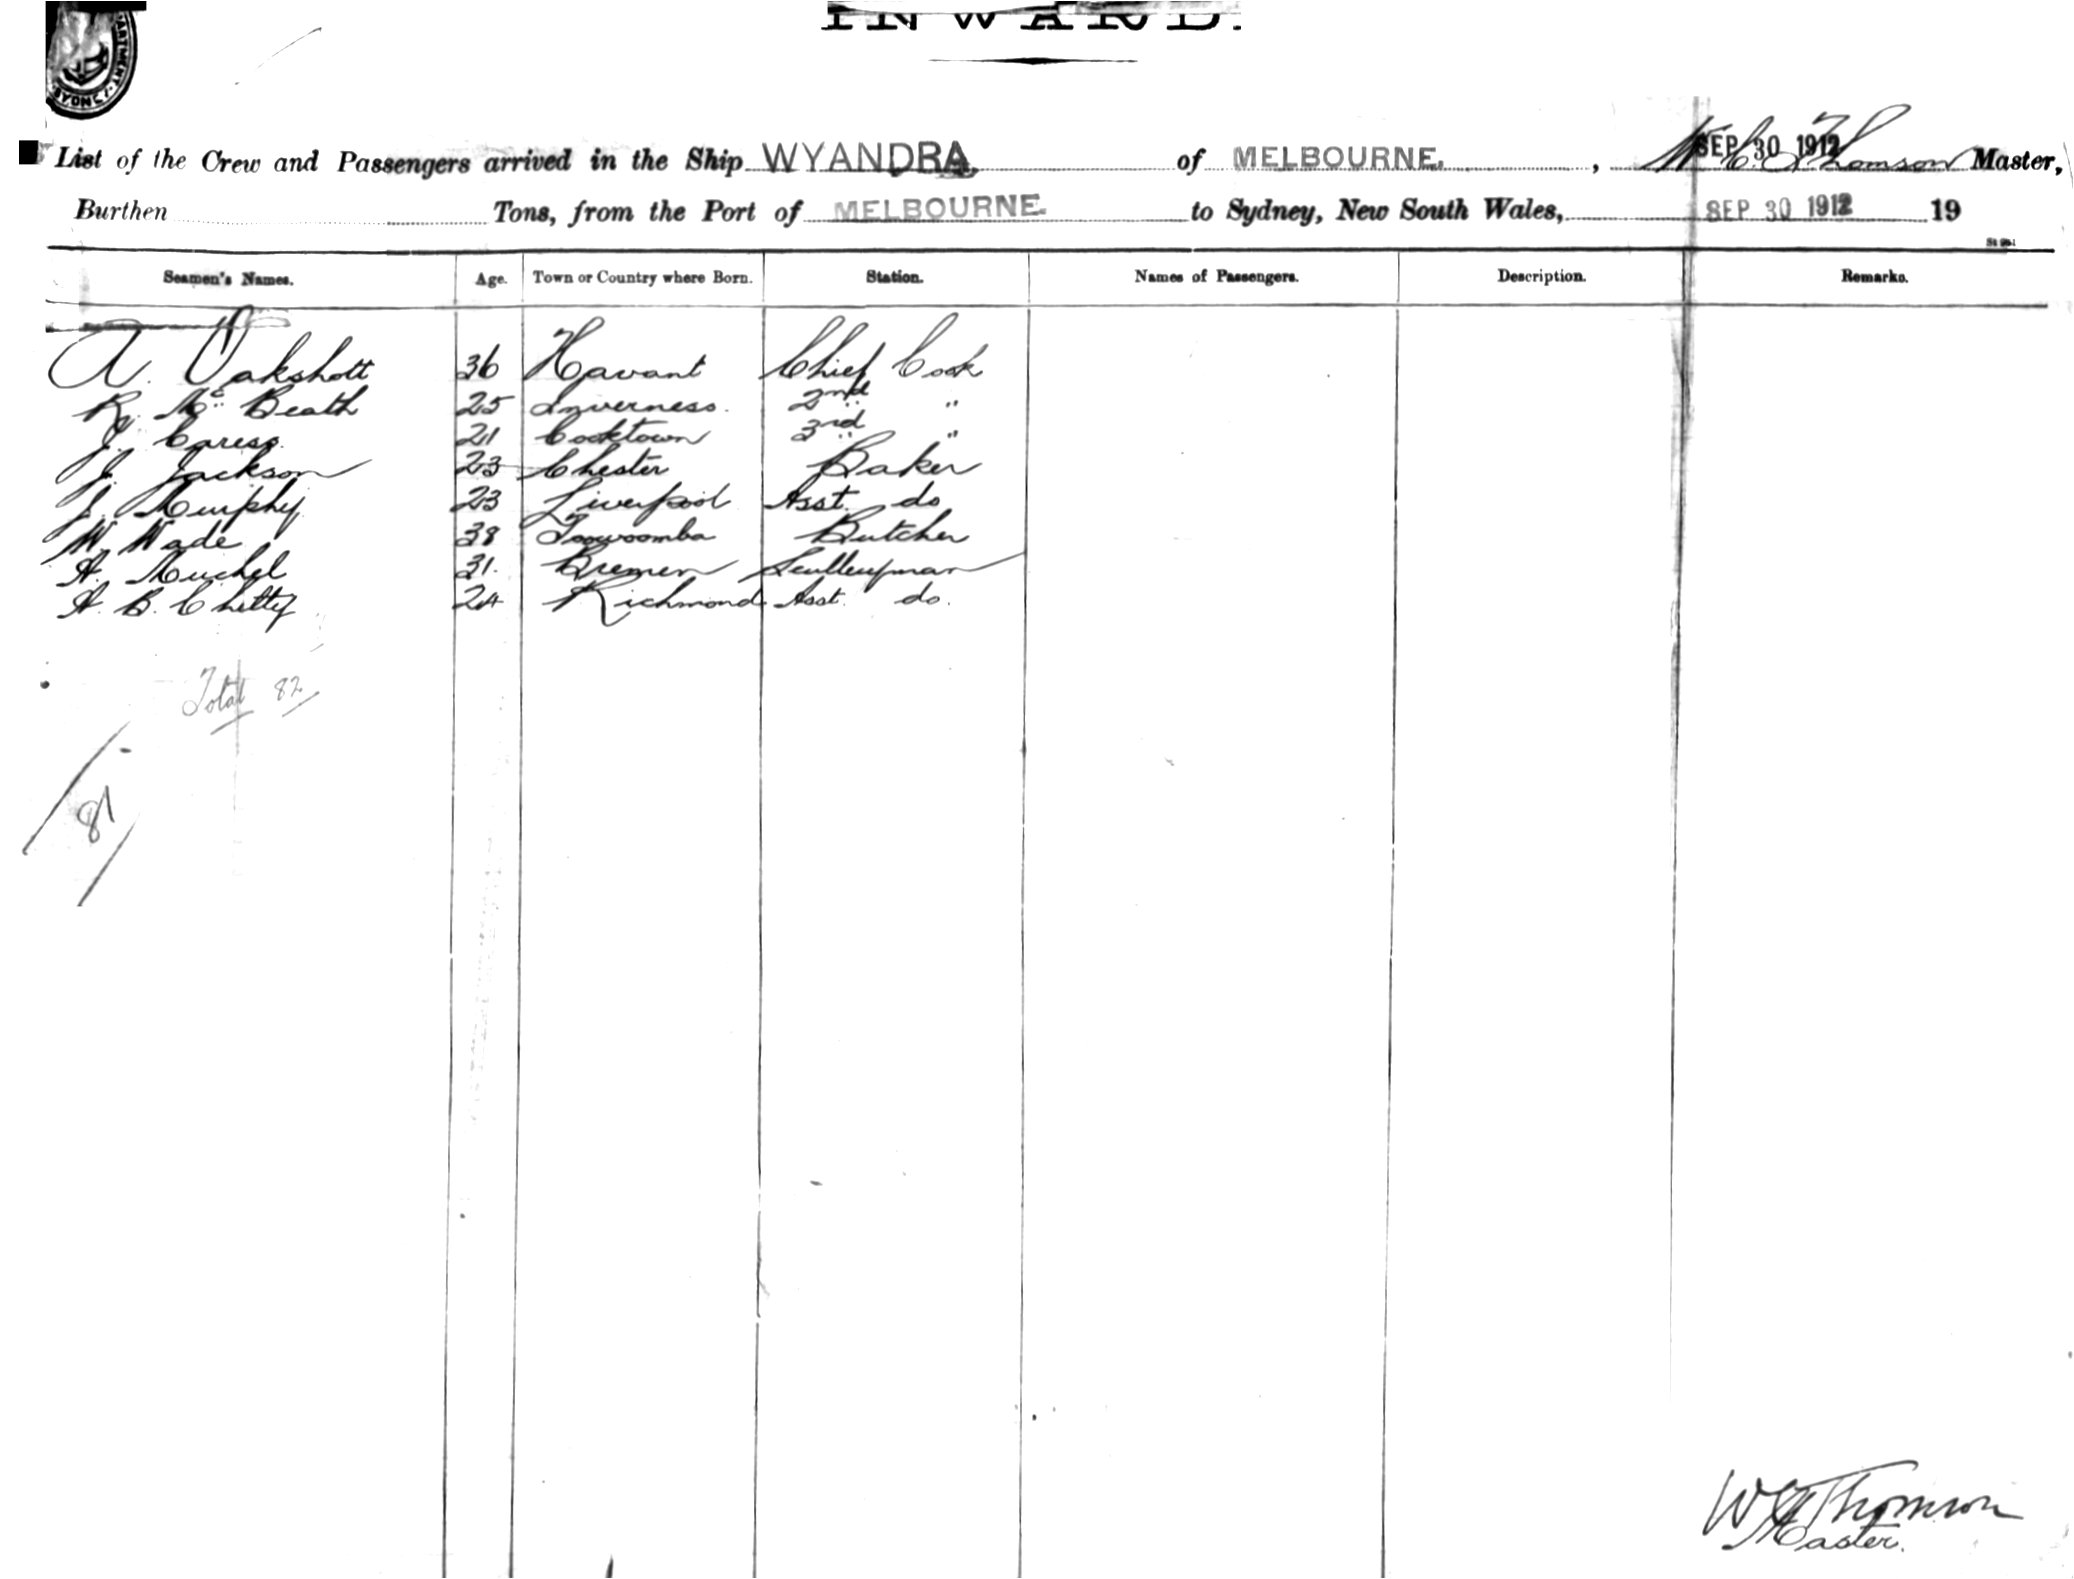 ARTMENT
SYDNEY
INWARD.
List of the Crew and Passengers arrived in the Ship WYANDRA, of MELBOURNE. , Thomson Master,
SEP 30 1912
Burthen Tons, from the Port of MELBOURNE. to Sydney, New South Wales, SEP 30 1912 19
Seamen's Names. Age. Town or Country where Born. Station. Names of Passengers. Description. Remarks.
A. Oakshott 36 Havant Chief Cook
R. Mc Beath 25 Inverness. 2nd "
J. 21 Cooktown 3rd "
J. Jackson 23 Chester Baker
J. Murphy 23 Liverpool Asst. do
W. Wade 38 Toowoomba Butcher
A. 31. Bremen Sculleryman
A. B. Chitty 24 Richmond Asst. do.
Total 82
81
Thomson
Master.